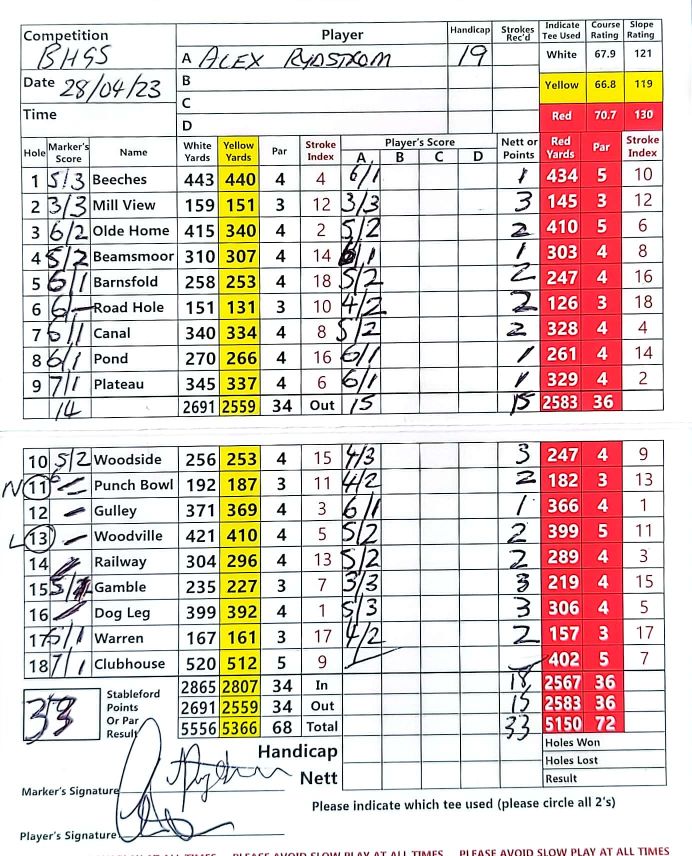 Competition Player Handicap Strokes Rec'd Indicate Tee Used Course Rating Slope Rating
BHGS A ALEX RYDSTROM 19 White 67.9 121
Date 28/04/23 B Yellow 66.8 119
Time C Red 70.7 130
D
Hole Marker's Score Name White Yards Yellow Yards Par Stroke Index Player's Score A B C D Nett or Points Red Yards Par Stroke Index
1 5/3 Beeches 443 440 4 4 6/1 1 434 5 10
2 3/3 Mill View 159 151 3 12 3/3 3 145 3 12
3 6/2 Olde Home 415 340 4 2 5/2 2 410 5 6
4 5/2 Beamsmoor 310 307 4 14 6/1 1 303 4 8
5 6/1 Barnsfold 258 253 4 18 5/2 2 247 4 16
6 6/— Road Hole 151 131 3 10 4/2 2 126 3 18
7 6/1 Canal 340 334 4 8 5/2 2 328 4 4
8 6/1 Pond 270 266 4 16 6/1 1 261 4 14
9 7/1 Plateau 345 337 4 6 6/1 1 329 4 2
14 2691 2559 34 Out 15 15 2583 36
10 5/2 Woodside 256 253 4 15 4/3 3 247 4 9
N 11 6 — Punch Bowl 192 187 3 11 4/2 2 182 3 13
12 — Gulley 371 369 4 3 6/1 1 366 4 1
L 13 — Woodville 421 410 4 5 5/2 2 399 5 11
14 Railway 304 296 4 13 5/2 2 289 4 3
15 Gamble 235 227 3 7 3/3 3 219 4 15
16 — Dog Leg 399 392 4 1 5/3 3 306 4 5
17 5/1 Warren 167 161 3 17 4/2 2 157 3 17
18 7/1 Clubhouse 520 512 5 9 — 402 5 7
2865 2807 34 In 18 2567 36
33 Stableford Points Or Par Result 2691 2559 34 Out 15 2583 36
5556 5366 68 Total 33 5150 72
Handicap Holes Won
Nett Holes Lost
Result
Marker's Signature
Please indicate which tee used (please circle all 2's)
Player's Signature
PLAY AT ALL TIMES PLEASE AVOID SLOW PLAY AT ALL TIMES PLEASE AVOID SLOW PLAY AT ALL TIMES